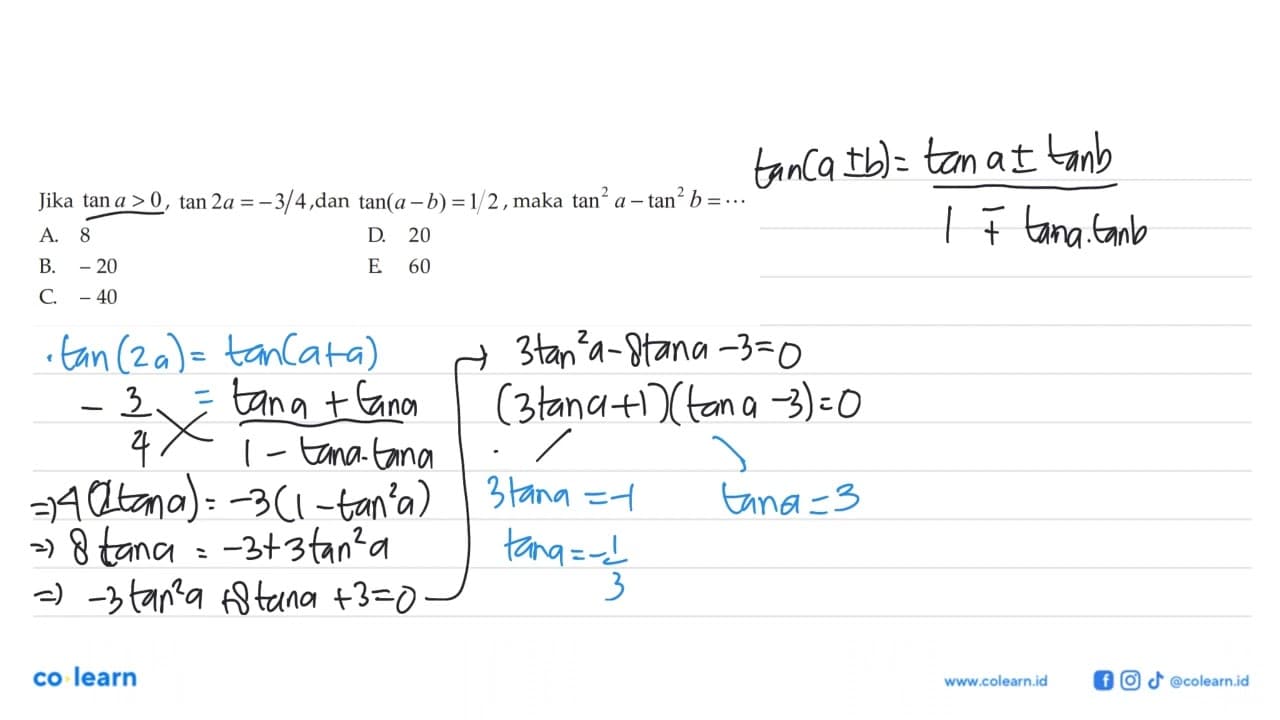 Jika tan a > 0, tan 2a = −3/4, dan tan(a − b) = 1/2, maka tan² a − tan² b = ⋯
A. 8 D. 20
B. – 20 E. 60
C. – 40
tan(a ± b) = (tan a ± tan b) / (1 ∓ tan a . tan b)
. tan (2a) = tan(a+a)
- 3/4 = (tan a + tan a) / (1 - tan a . tan a)
=> 4(2 tan a) = -3(1 - tan²a)
=> 8 tan a = -3+3 tan²a
=> -3 tan²a +8 tan a +3=0
→ 3 tan²a - 8 tan a - 3=0
(3 tan a +1)(tan a -3)=0
3 tan a = -1 tan a = 3
tan a = -1/3
co learn
www.colearn.id @colearn.id